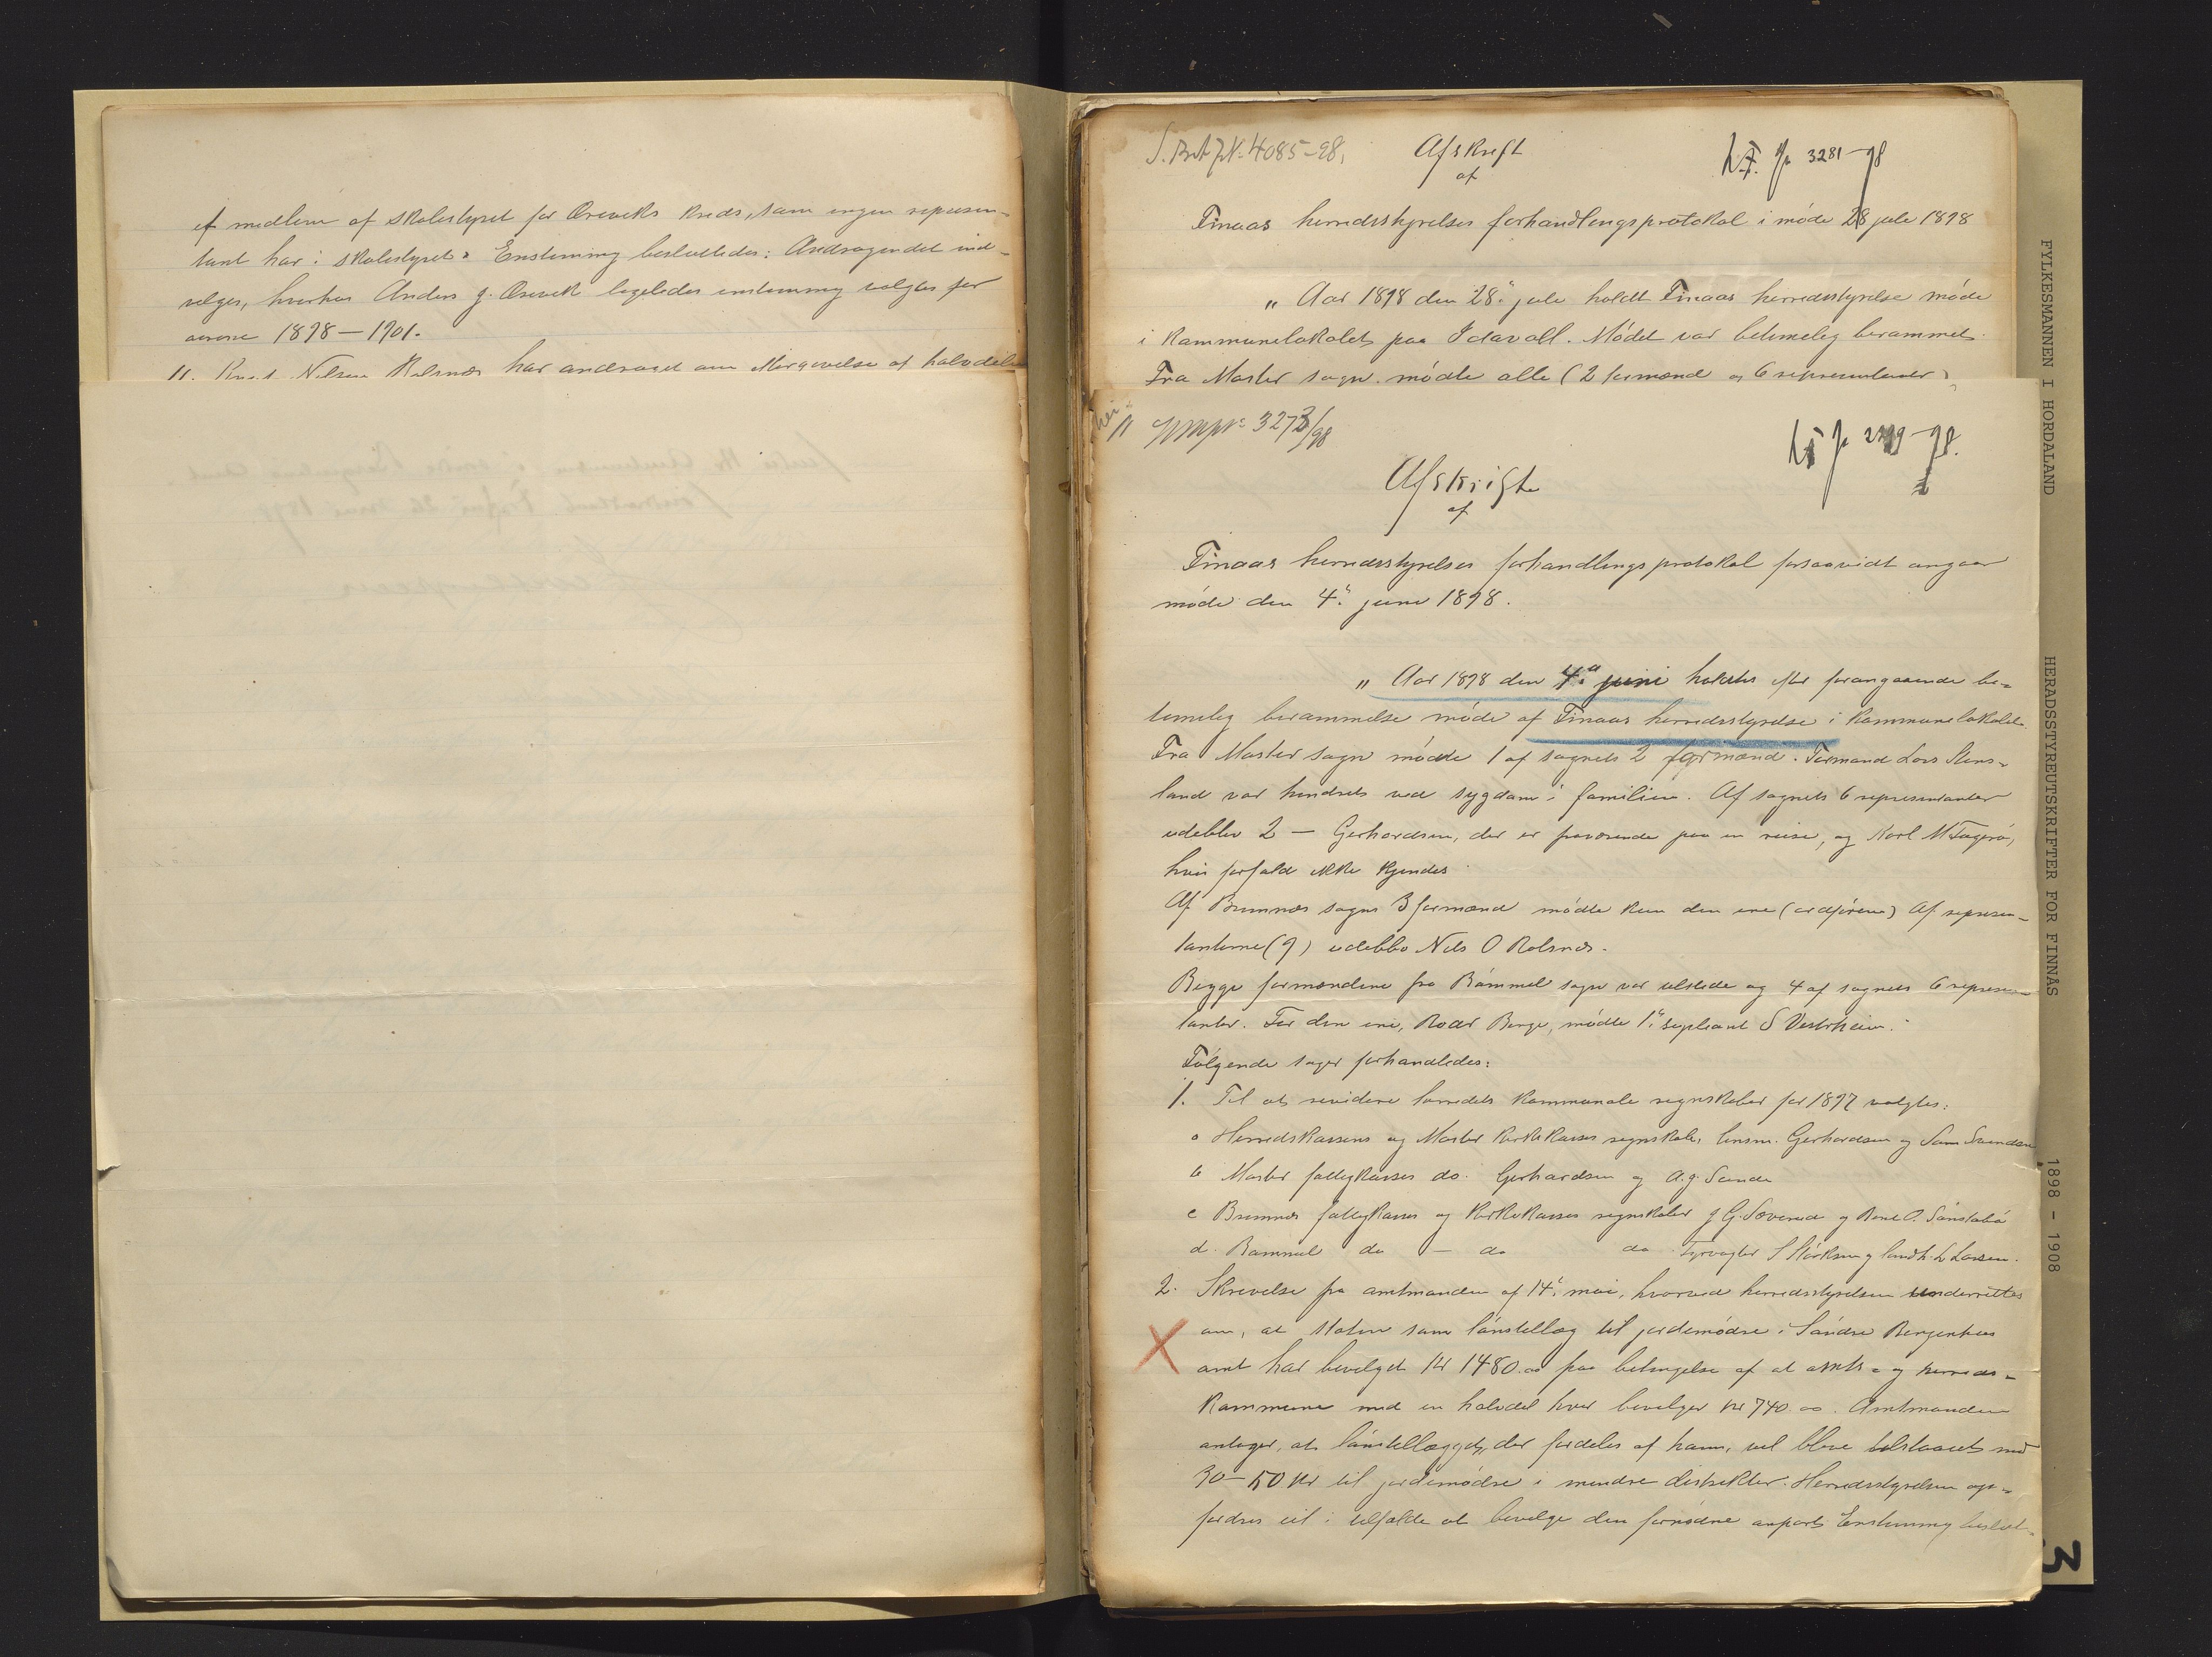 et medlem af skolestyret for Øreviks kreds, som ingen represen-
tant har i skolestyret. Enstemmig besluttedes: Andragendet ind-
vilges, hvorhos Anders J. Ørevik ligeledes enstemmig valgtes for
aarene 1898–1901.
11. Knut Nilsen Rolsnæs har andraget om eftergivelse af halvdele
S. Brt JN: 4085-98.
Afskrift
af
3281-98
Finaas herredsstyrelses forhandlingsprotokol i møde 28 jule 1898
„ Aar 1898 den 28: jule holdt Finaas herredsstyrelse møde
i kommunelokalet paa Idavoll. Mødet var betimelig berammet.
Fra Moster sogn mødte alle (2 formænd og 6 representanter)
3273/98
98.
Afskrift
af
Finaas herredsstyrelses forhandlingsprotokol forsaavidt angaar
møde den 4: juni 1898.
„ Aar 1898 den 4: juni holdtes efter forangaaende be-
timelig berammelse møde af Finaas herredsstyrelse i kommunelokalet.
Fra Moster sogn mødte 1 af sognets 2 formænd. Formand Lars Stens-
land var hindret ved sygdom i familien. Af sognets 6 representanter
udeblev 2 — Gerhardsen, der er fraværende paa en reise, og Karl M. Fagerø,
hvis forfald ikke kjendes.
Af Bremnes sogns 3 formænd mødte kun den ene (ordføreren) Af represen-
tanterne (9) udeblev Nils O Rolsnæs.
Begge formændene fra Bømmel sogn var tilstede og 4 af sognets 6 represen-
tanter. For den ene, Roar Berge, mødte 1: supleant S Vestrheim.
Følgende sager forhandledes:
1. Til at revidere herredets kommunale regnskaber for 1897 valgtes:
a Herredskassens og Moster kirkekasses regnskab, lensm. Gerhardsen og Sam Svendsen
b Moster fattigkasses do. Gerhardsen og A. J. Sande
c Bremnes fattigkasses og kirkekasses regnskaber J G. Sæverud og
d. Bømmel do — do do Fyrvogter S og landh. L Larsen.
2. Skrivelse fra amtmanden af 14: mai, hvorved herredsstyrelsen underrettes
om, at staten som lønstillæg til jordemødre i Søndre Bergenhus
amt har bevilget Kr 1480.00 paa betingelse af at amts- og herreds-
kommune med en halvdel hver bevilger kr 740.00. Amtmanden
antager, at lønstillægget, der fordeles af ham, vil blive tilstaaet med
30–50 kr til jordemødre i mindre distrikter. Herredsstyrelsen op-
fordres til i tilfælde at bevilge den fornødne anpart. Enstemmig beslut-
FYLKESMANNEN I HORDALAND
HERADSSTYREUTSKRIFTER FOR FINNÅS
1898 - 1908
3